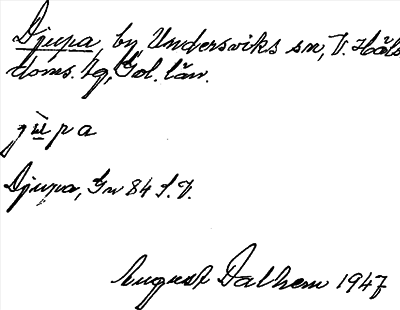 Djupa, by, Undersviks sn, V. Häls.
doms. tg, Gvl. län.
jùpa
Djupa, Gv 84 S.V.
August Dalhem 1947